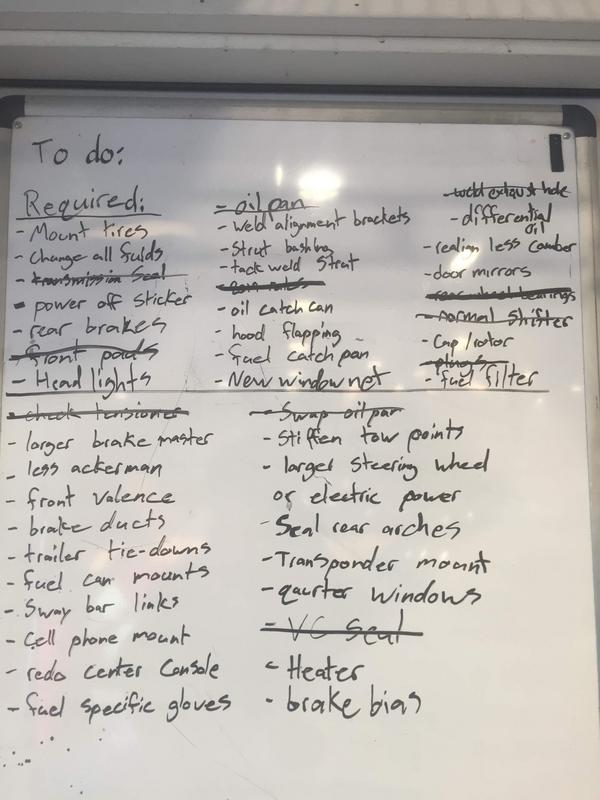 To do:
Required:
- Mount tires
- Change all fuids
- transmission Seal
- power off sticker
- rear brakes
- front pads
- Head lights
- oil pan
- Weld alignment brackets
- Strut bashing
- tack weld Strut
- oil catch can
- hood flapping
- Fuel catch pan
- New window net
- weld exhaust hole
- differential
oil
- realign less camber
- door mirrors
- rear wheel bearings
- normal Shifter
- Cap/rotor
- plugs
- fuel filter
- check tensioner
- larger brake master
- less ackerman
- front valence
- brake ducts
- trailer tie-downs
- fuel can mounts
- Sway bar links
- Cell phone mount
- redo Center Console
- fuel specific gloves
- Swap oil pan
- Stiffen tow points
- larger steering wheel
or electric power
- Seal rear arches
- Transponder mount
- quarter windows
- VC Seal
- Heater
- brake bias